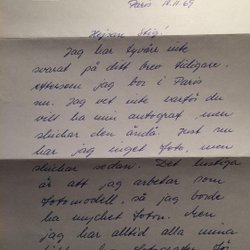 Paris 18.11.69
Hejsan Stig!
Jag har tyvärr inte
svarat på ditt brev tidigare,
eftersom jag bor i Paris
nu. Jag vet inte varför du
vill ha min autograf, men
skickar den ändå. Just nu
har jag inget foto, men
skickar sedan. Det lustiga
är att jag arbetar som
fotomodell, så jag borde
ha mycket foton. Men
jag har alltid alla mina